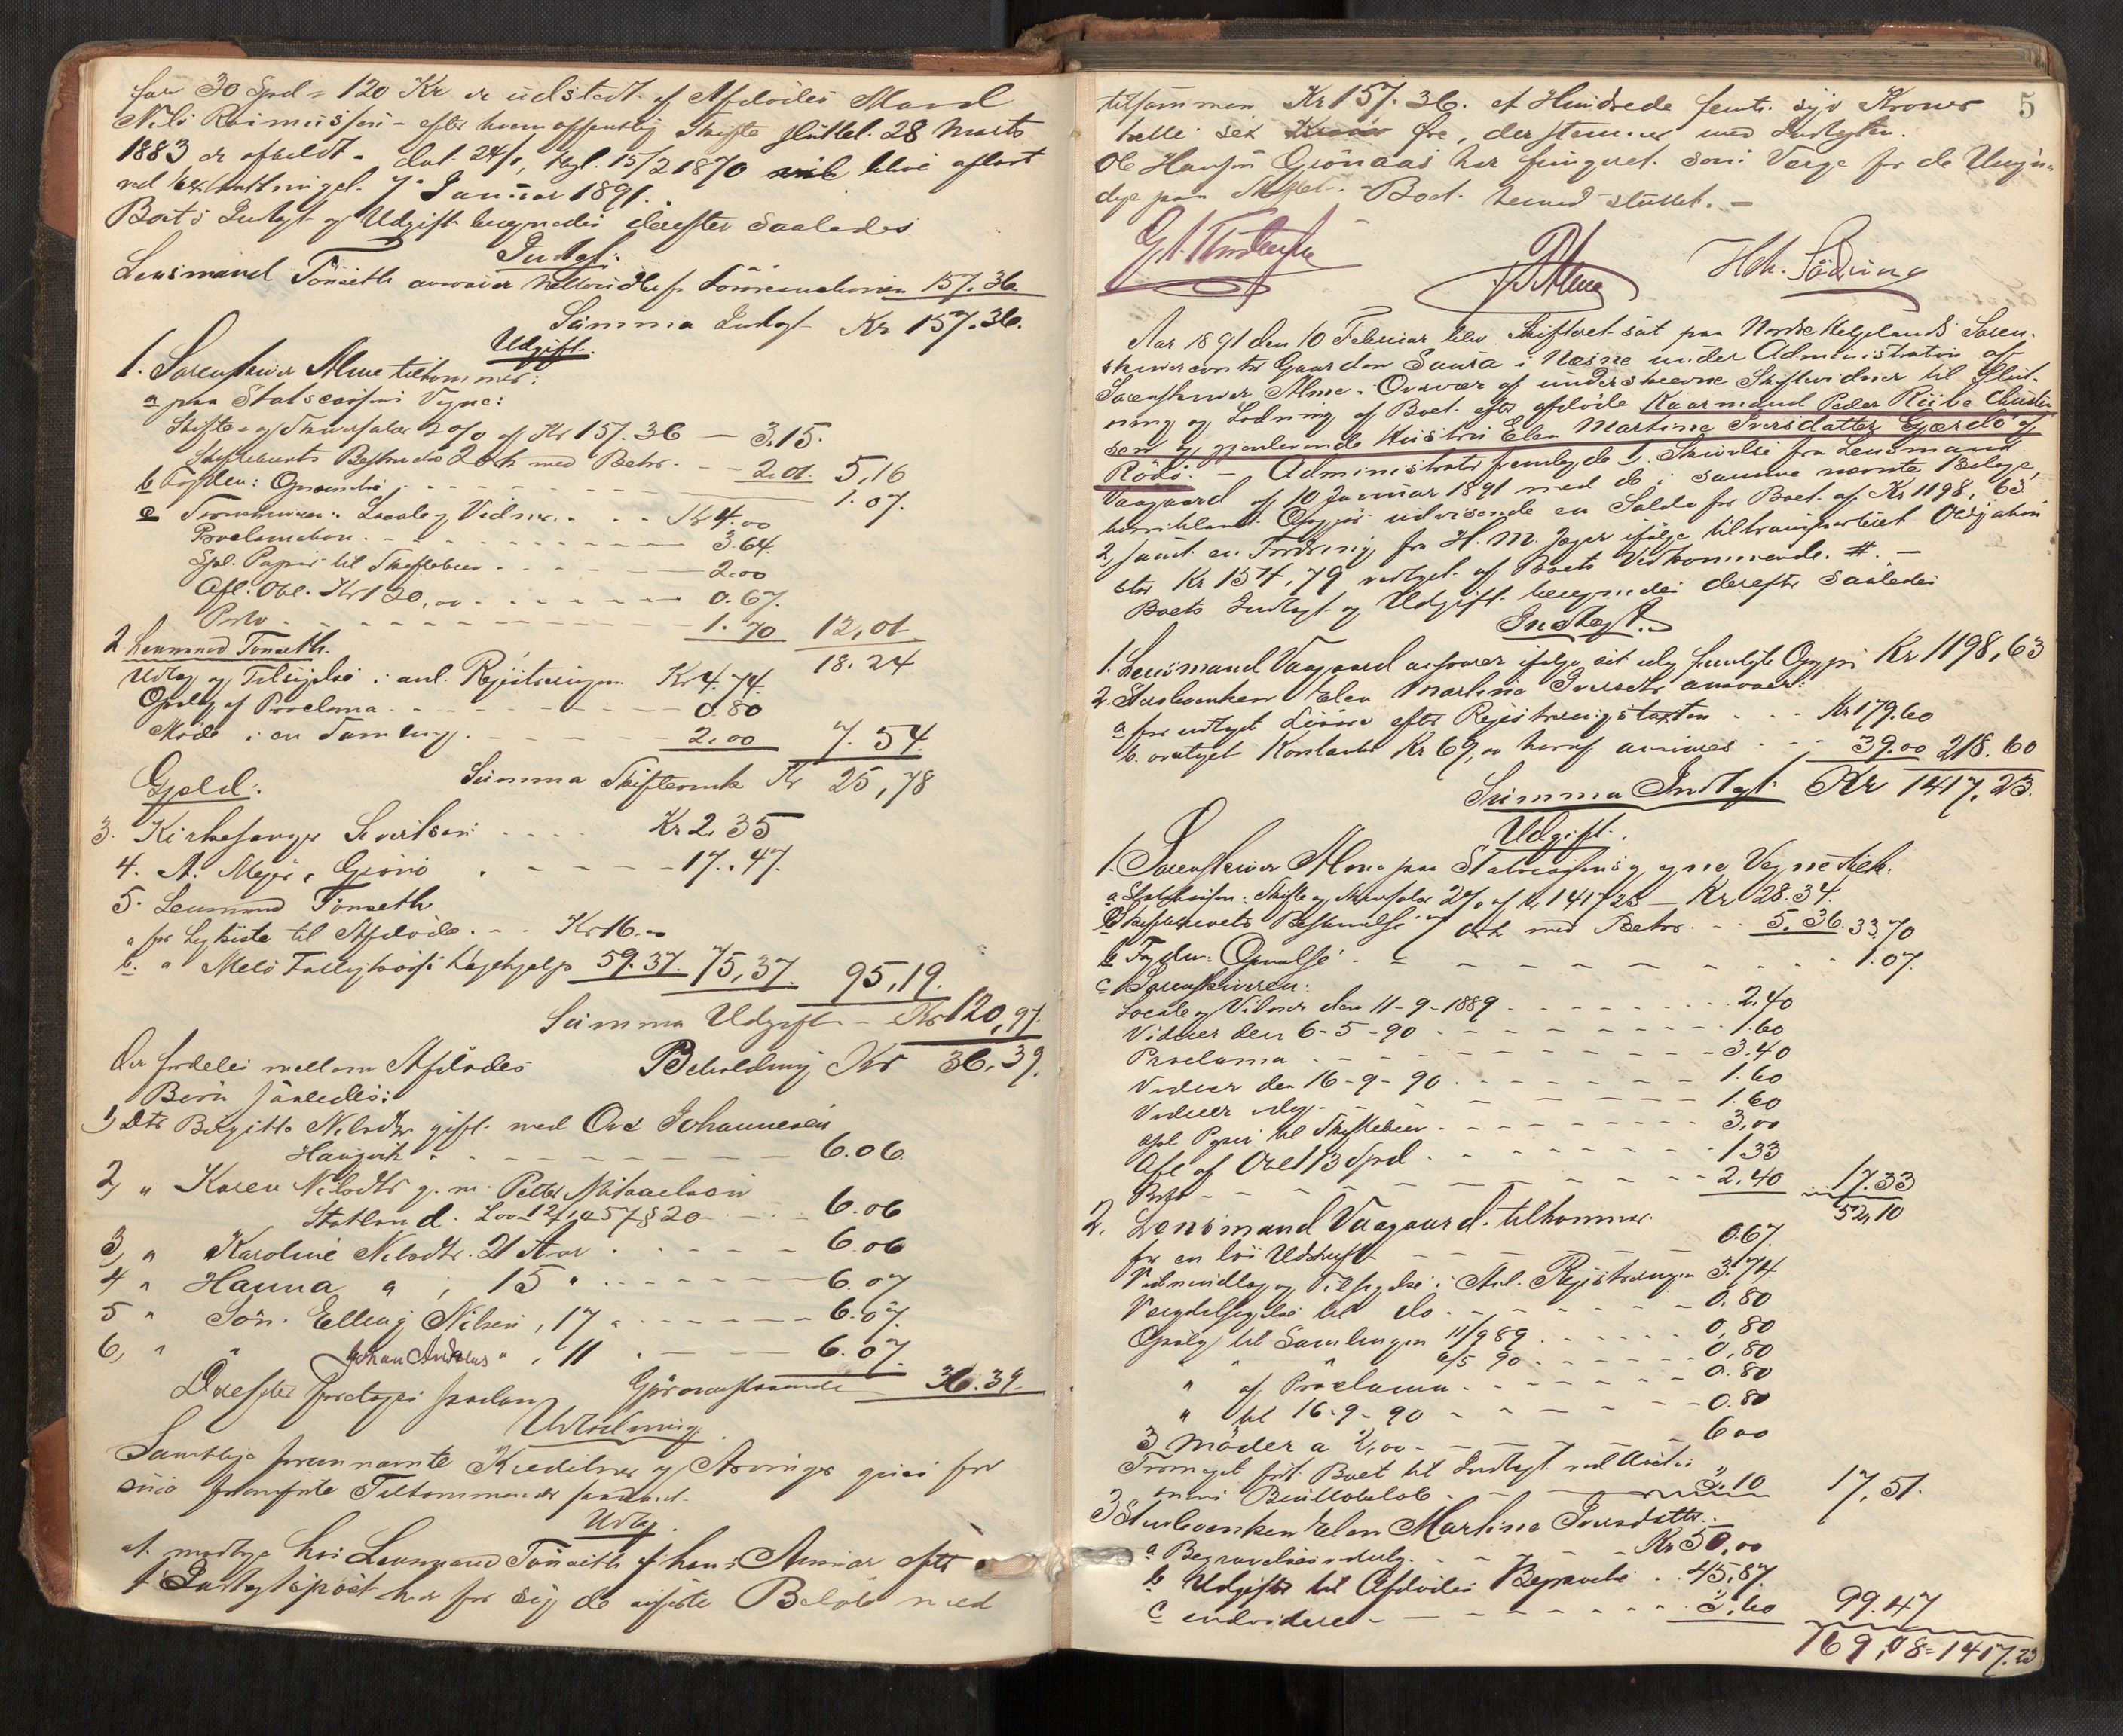 for 30 Spd = 120 Kr er udstedt af Afdødes Mand
Nils Rasmussen - efter hvem offentlig Skifte sluttet 28 Marts
1883 er afholdt - dat. 24/1, tgl. 15/2 1870 vil blive aflæst
ved Extrathinget 7 Januar 1891.
Boets Indtægt og Udgift beregnedes derefter saaledes
Indtgt:
Lensmand Tönseth ansvarer Nettoindtg fr Löireauktionen 157.36
Summa Indtgt Kr 157.36.
Udgift.
1. Sorenskriver Alme tilkommer:
a paa Statscassens Vegne:
Skifte- og Skriversalær 2% af Kr 157.36 — 3.15.
Skiftebrevets Beskrivelse 2 Ark med Betr. - - 2.01. 5,16
b Fogden: Opsendelse - - - 1.07.
c Sorenskriveren: Locale og Vidner. - - - Kr 4.00
Proclamation. - - - 3.64.
Spl. Papir til Skiftebrev - - - 2.00
Afl. Obl. Kr 120,00 - - - 0.67.
Porto - - - 1.70 12,01
2 Lensmand Tönseth. 18.24
Udlæg og Tilsigelse i anl. Registreringen Kr 4.74.
Opslg af Proclama. - - - 0.80
Møde i en Samling. - - - 2.00 7.54.
Gjæld: Summa Skifteomk Kr 25,78
3. Kirkesanger Sivertsen: .... Kr 2.35
4. A. Mejer, Grönö . - - - 17.47.
5. Lensmand Tönseth
a for Ligkiste til Afdøde. - - Kr 16.00
b. " Melö Fattigkasses Lægehjælp 59.37. 75,37. 95,19.
Summa Udgift - Kr 120,97.
Der fordeles mellem Afdødes Beholdning Kr 36.39.
Börn saaledes:
1) Dtr Birgitte Nilsdtr gift med Ove Johannesen
Haugvik - - - 6.06.
2, " Karen Nilsdtr g. m. Petter Mikaelsen
Stokland. Lov 12/10 57 § 20 - - - 6.06
3, " Karoline Nilsdtr. 21 Aar . - - - 6.06
4 " Hanna " , 15 " - - - 6.07
5 " Sön. Elling Nilsen, 17 " - - - 6.07.
6, " " Johan Andreas " , 11 . - - - 6.07.
Gjör ovenstaaende 36.39.
Derefter foretoges saadan
Udlodning.
Samtlige forannævnte Kreditorer og Arvinger gives for
sine forannførte Tilkommender saadant
Udlæg.
at modtage hos Lensmand Tönseth af hans Ansvar efter
1 Indtægtspost hver for sig de anførte Beløb med
5
tilsammen Kr 157.36. et Hundrede femti syv Kroner
tretti sex Kroner Øre, der stemmer med Indtgten.
Ole Hansen Grönaas har fungeret som Værge for de Umyn-
dige paa Skiftet. - Boet hermed sluttet. -
Alme
Hch. Södring
Aar 1891 den 10 Februar blev Skifteret sat paa Nordre Helgelands Soren-
skrivercontor Gaarden Saura i Næsne under Administration af
Sorenskriver Alme. Overvær af underskrevne Skiftevidner til Slut-
ning og Lodning af Boet efter afdøde Kaarmand Peder Riibe Christen
sen og gjenlevende Hustru Elen Martine Iversdatter Gjærdö af
Rödö. - Administrator fremlagde 1. Skrivelse fra Lensmand
Vaagaard af 10 Januar 1891 med de i samme nævnte Bilage,
heriblandt Opgjör udvisende en Saldo for Boet af Kr 1198,63
2, samt en Fordring fra H. M. Jager ifølge tiltransporteret Obligation
stor Kr 154,79 vedtget af Boets Vedkommende. #. -
Boets Indtægt og Udgift beregnedes derefter saaledes
Indtægt.
1. Lensmand Vaagaard ansvarer ifølge sit idag fremlagte Opgjör Kr 1198,63
2. Sterboenken Elen Martine Iversdtr ansvarer:
a for udtaget Løsøre efter Registreringstaxten - - - Kr 179.60
b. overtaget Kontanter Kr 69,00 heraf ansvares - - - 39.00 218.60
Summa Indtgt Kr 1417.23.
Udgift.
1. Sorenskriver Alme paa Statscassens og egne Vegne tilk:
a Statskassen: Skifte og Skriversalær 2% af Kr 1417.23 — Kr 28.34.
Skiftebrevets Beskrivelse 7 Ark med Betr. - - 5,36. 33.70
b Fogden: Opsendelse - - - 1.07.
c Sorenskriveren:
Locale og Vidner den 11-9-1889 - - - 2.40
Vidner den 6-5-90 - - - 1.60
Proclama - - - 3.40
Vidner den 16-9-90 - - - 1.60
Vidner idag. - - - 1.60
spl Papir til Skiftebrev - - - 3,00
Afl af Obl 113 Spd - - - 1.33
Porto - - - 2.40 17.33
52,10
2. Lensmand Vaagaard tilkommer
for en løs Udskrift - - - 0.67.
Vidneudlæg og Tilsigelse i Anl. Registreringen 3.74
Værgetilsigelse til do. - - - 0.80
Opslg til Samlingen 11/9 89 - - - 0.80
" " " 6/5 90 - - - 0.80
" af Proclama - - - 0.80
" til 16-9-90 - - - 0.80
3 Møder a 2,00 - - - 6 00
Formeget ført Boet til Indtægt ved
3.10 17,51.
3 Sterboenken Elen Martine Iversdatter:
a Begravelses - - - Kr 50,00
b Udgifter til Afdødes Begravelse . . 45,87.
c endvidere - - - 3.60 99.47
169,08 = 1417.23